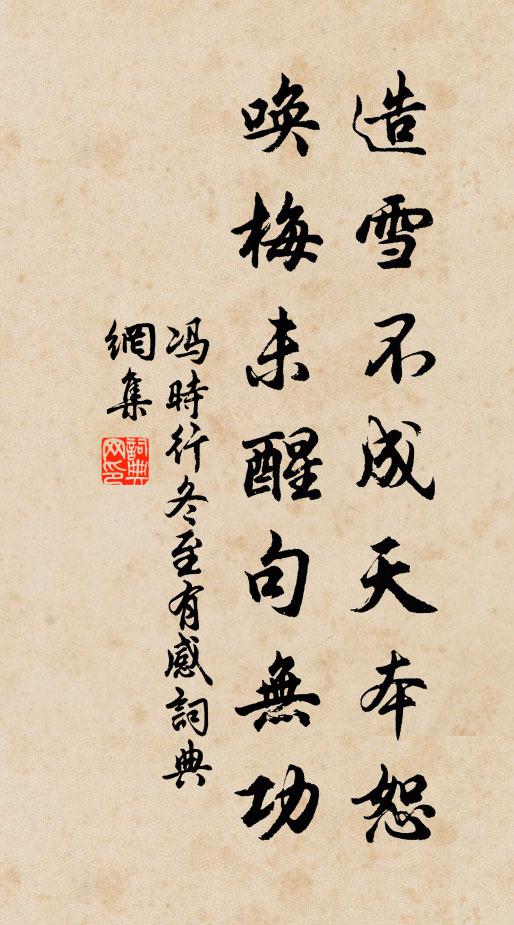 造雪不成天本恕
喚梅未醒句無功
冯時行冬至有感詞典
網集
詞典
网印